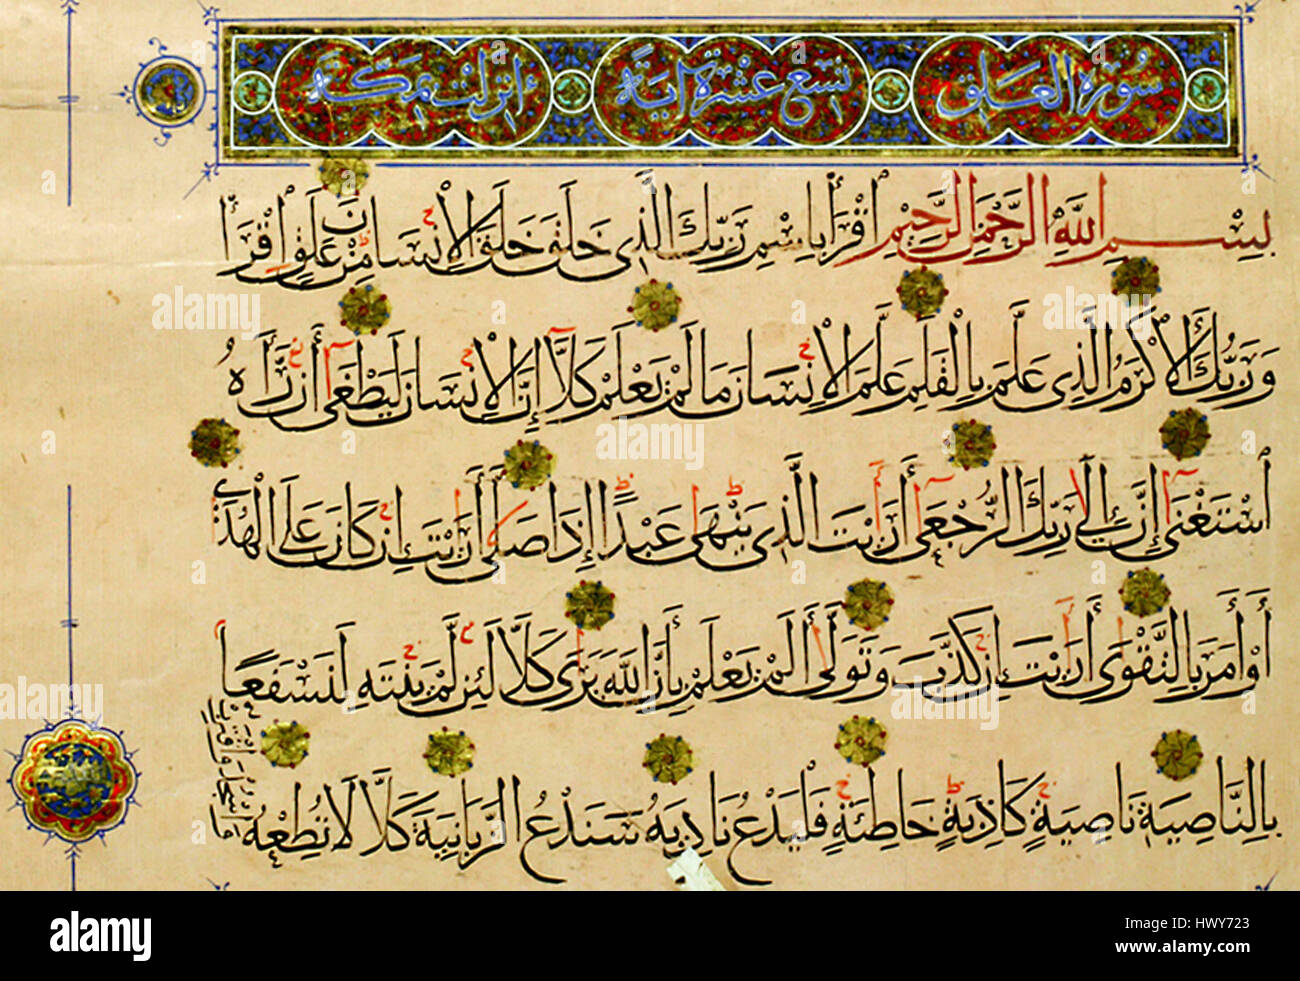 سُورَةُ الْعَلَق تسع عشرة آية أنزلت بمكة
بِسْمِ اللَّهِ الرَّحْمَنِ الرَّحِيمِ اقْرَأْ بِاسْمِ رَبِّكَ الَّذِي خَلَقَ خَلَقَ الْإِنْسَانَ مِنْ عَلَقٍ اقْرَأْ
وَرَبُّكَ الْأَكْرَمُ الَّذِي عَلَّمَ بِالْقَلَمِ عَلَّمَ الْإِنْسَانَ مَا لَمْ يَعْلَمْ كَلَّا إِنَّ الْإِنْسَانَ لَيَطْغَى أَنْ رَآهُ
اسْتَغْنَى إِنَّ إِلَى رَبِّكَ الرُّجْعَى أَرَأَيْتَ الَّذِي يَنْهَى عَبْدًا إِذَا صَلَّى أَرَأَيْتَ إِنْ كَانَ عَلَى الْهُدَى
أَوْ أَمَرَ بِالتَّقْوَى أَرَأَيْتَ إِنْ كَذَّبَ وَتَوَلَّى أَلَمْ يَعْلَمْ بِأَنَّ اللَّهَ يَرَى كَلَّا لَئِنْ لَمْ يَنْتَهِ لَنَسْفَعًا
بِالنَّاصِيَةِ نَاصِيَةٍ كَاذِبَةٍ خَاطِئَةٍ فَلْيَدْعُ نَادِيَهُ سَنَدْعُ الزَّبَانِيَةَ كَلَّا لَا تُطِعْهُ
وَاسْجُدْ وَاقْتَرِبْ
alamy stock photo
HWY723
www.alamy.com